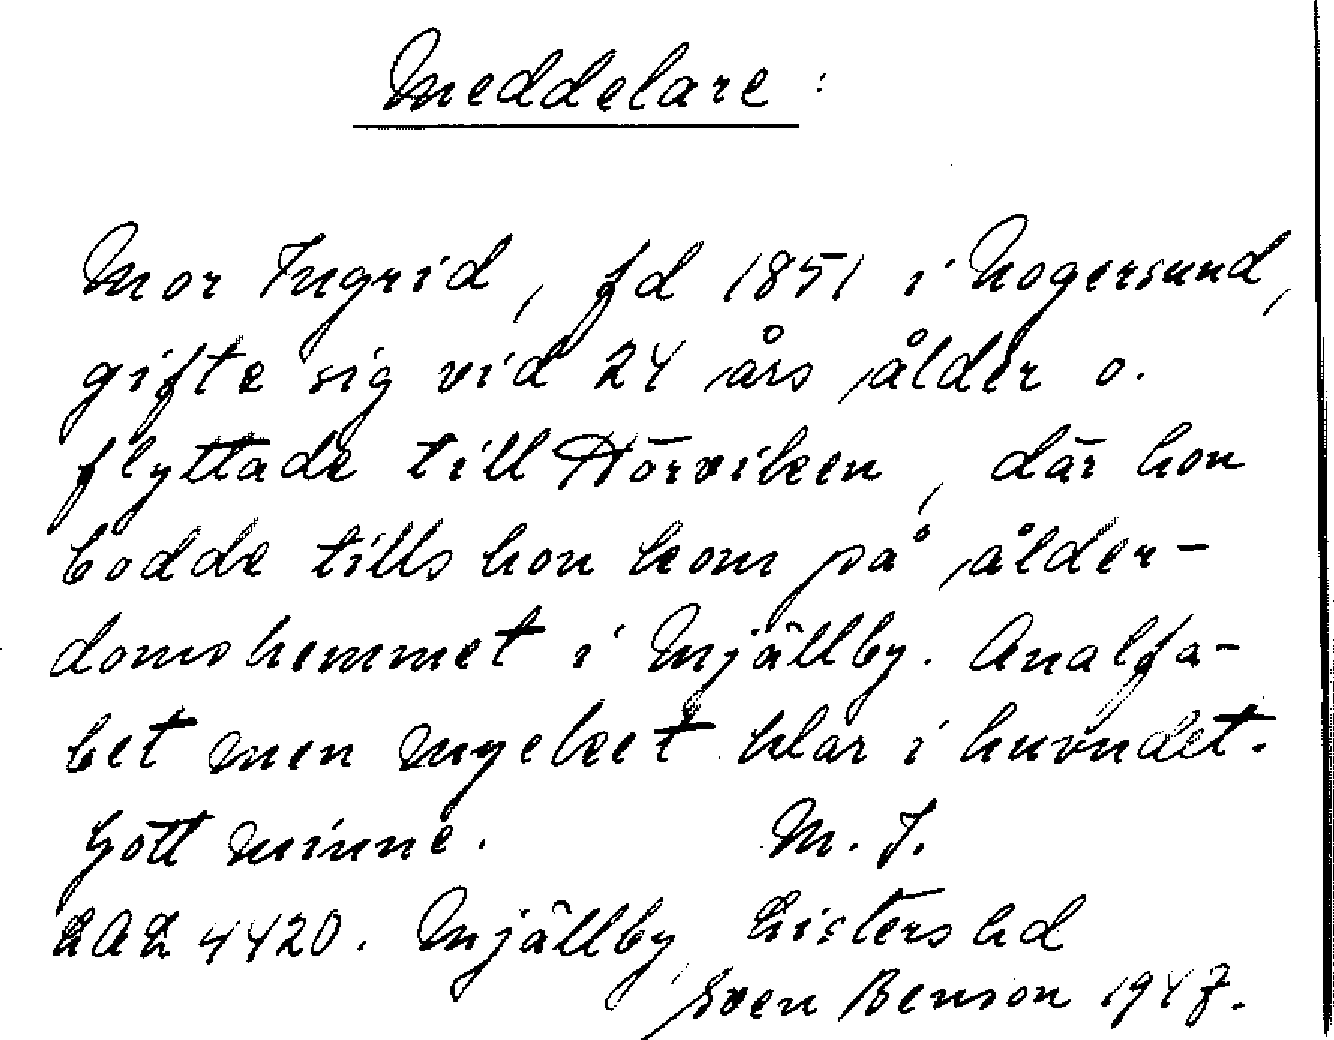 Meddelare :
Mor Ingrid, fd 1851 i Nogersund,
gifte sig vid 24 års ålder o.
flyttade till Hörviken, där hon
bodde tills hon kom på ålder-
domshemmet i Mjällby. Analfa-
bet men mycket klar i huvudet.
Gott minne. M. I.
LAL 4420. Mjällby, Listers hd
Sven Benson 1947.